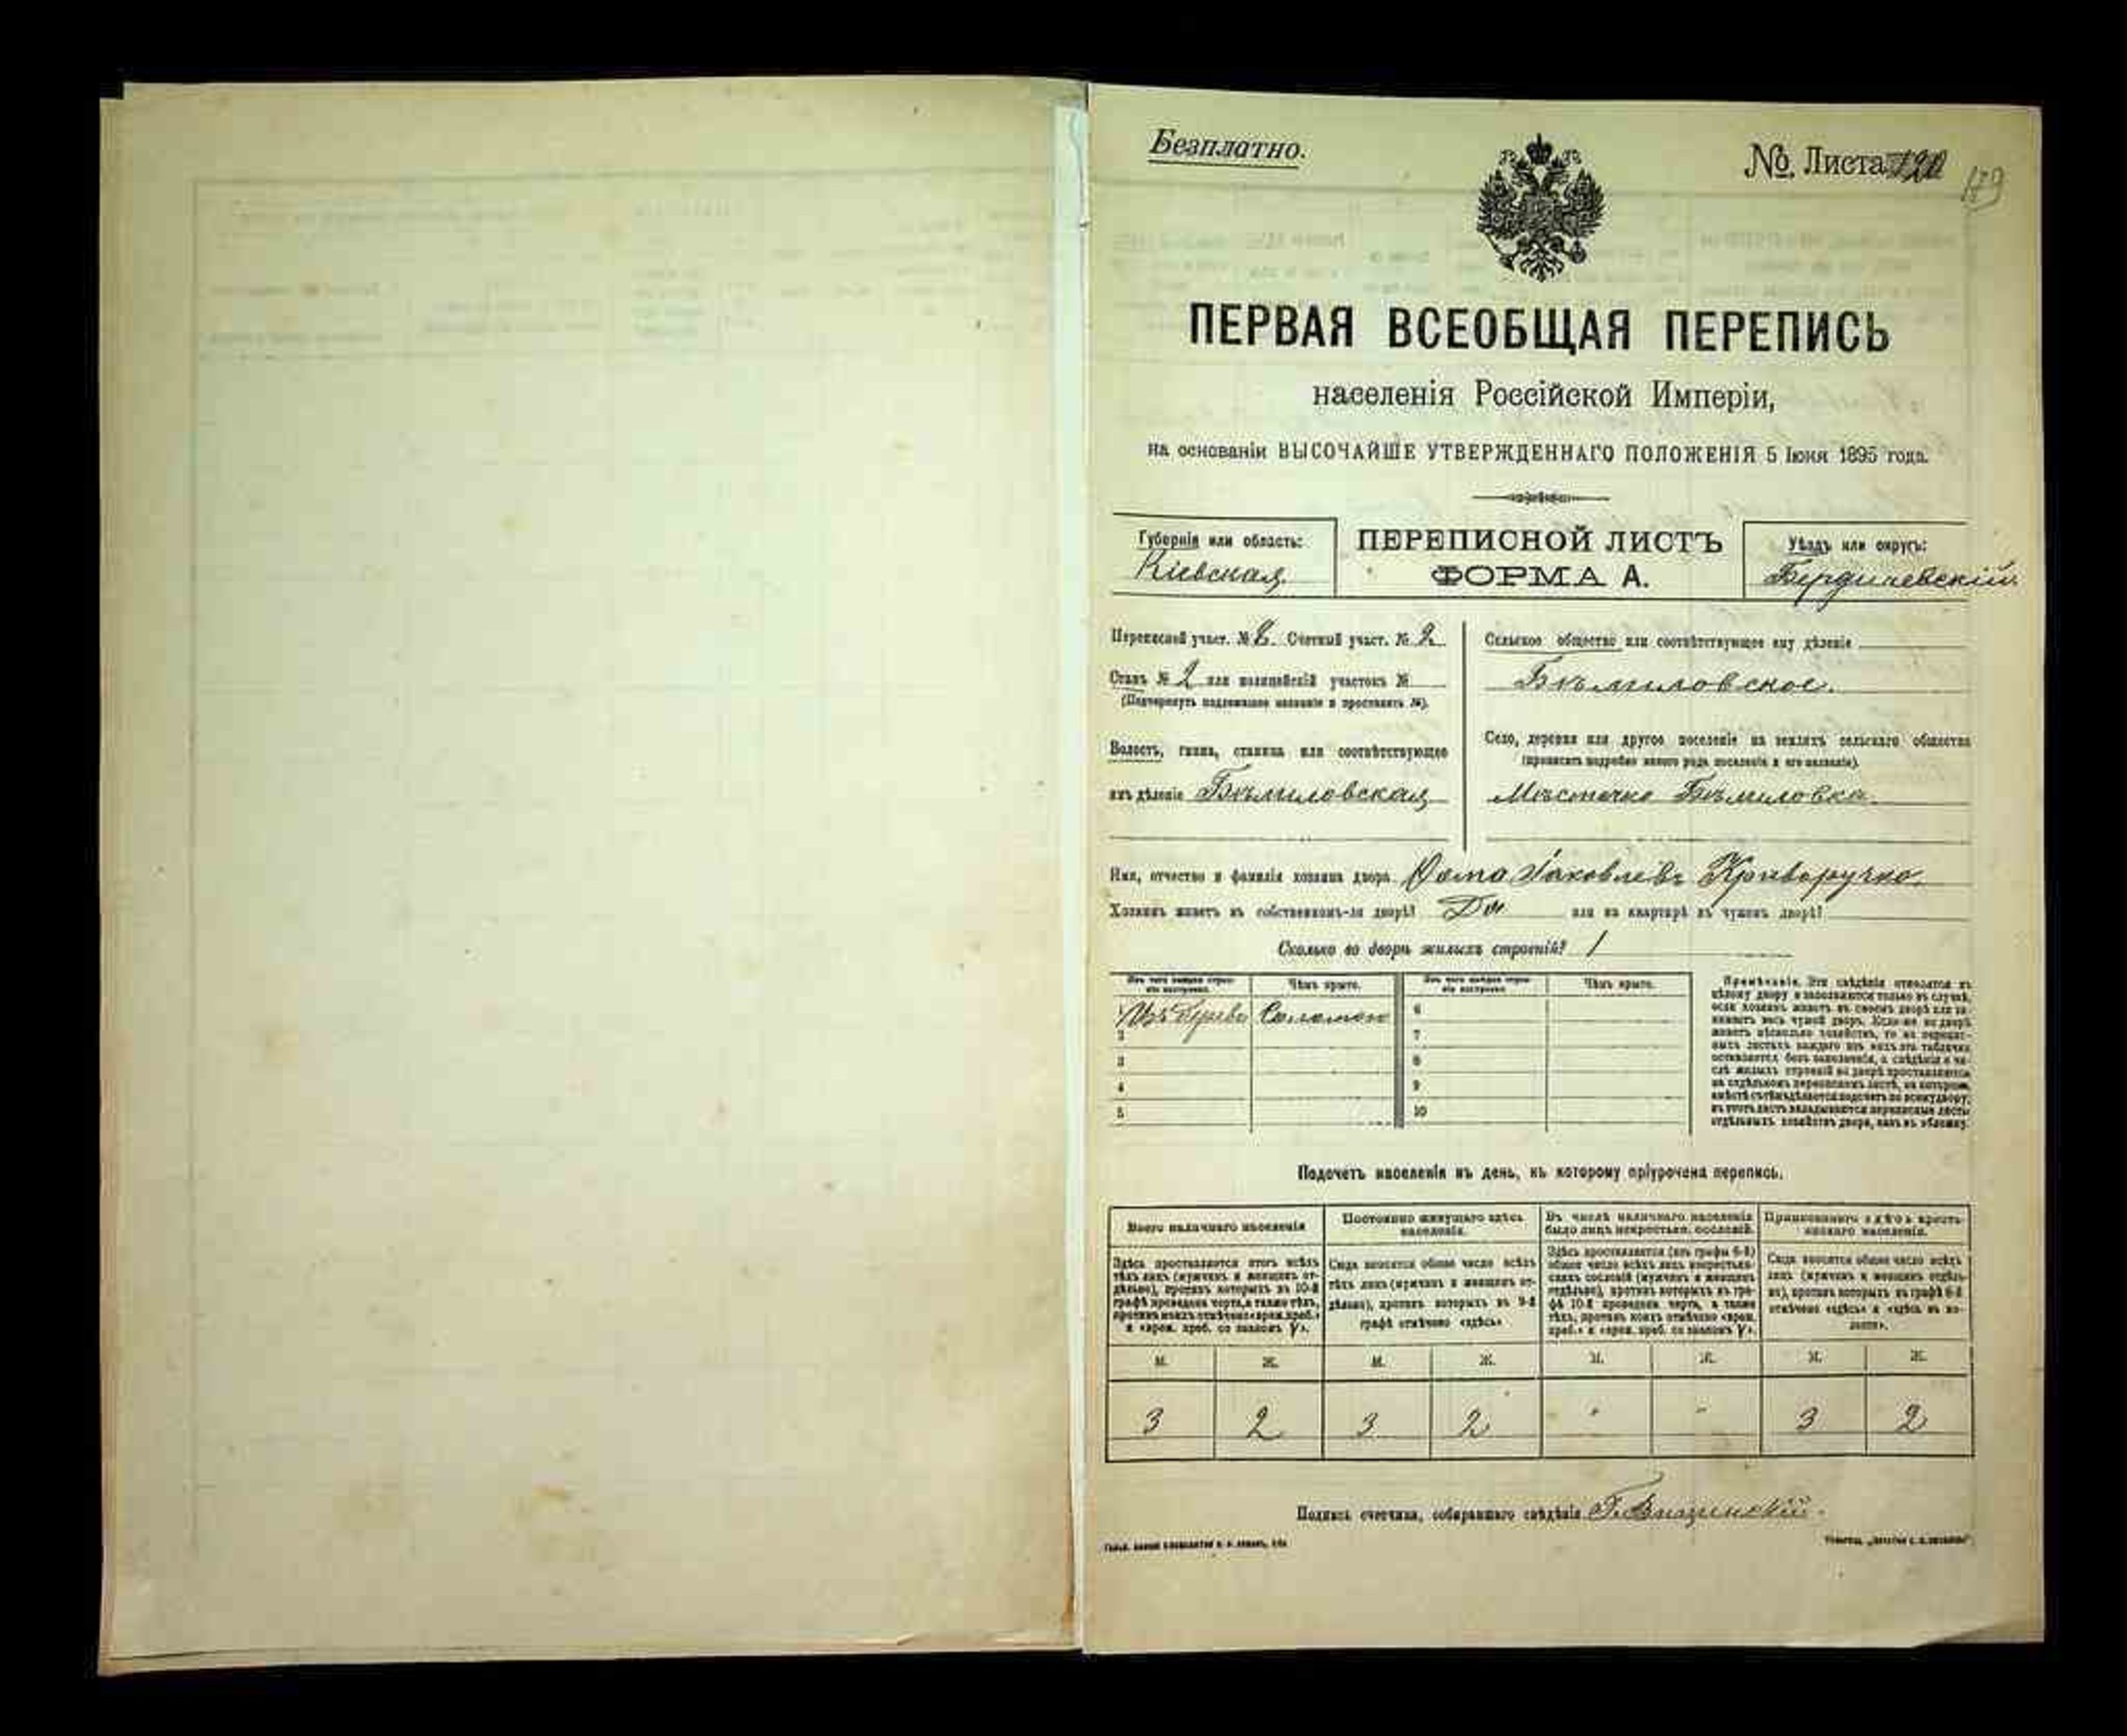 Безплатно.
№ Листа 120
179
ПЕРВАЯ ВСЕОБЩАЯ ПЕРЕПИСЬ
населенія Россійской Имперіи,
на основаніи ВЫСОЧАЙШЕ УТВЕРЖДЕННАГО ПОЛОЖЕНІЯ 5 Іюня 1895 года.
Губернія или область:
Кіевская
ПЕРЕПИСНОЙ ЛИСТЪ
ФОРМА А.
Уѣздъ или округъ:
Бердичевскій
Переписной участ. № 8 Счетный участ. № 2
Станъ № 2 или полицейскій участокъ №
(Подчеркнуть надлежащее названіе и проставить №).
Волость, гмина, станица или соотвѣтствующее
имъ дѣленіе Бѣлиловская
Сельское общество или соотвѣтствующее ему дѣленіе
Бѣлиловское.
Село, деревня или другое поселеніе на земляхъ сельскаго общества
(прописать подробно какого рода поселеніе и его названіе).
Мѣстечко Бѣлиловка
Имя, отчество и фамилія хозяина двора Ѳома Іаковлевъ Криворучко.
Хозяинъ живетъ въ собственномъ-ли дворѣ? Да или на квартирѣ въ чужомъ дворѣ?
Сколько во дворѣ жилыхъ строеній? 1
Изъ чего каждое строеніе построено. Чѣмъ крыто. Изъ чего каждое строеніе построено. Чѣмъ крыто.
Изъ дерева Соломою 6
2 7
3 8
4 9
5 10
Примѣчаніе. Эти свѣдѣнія относятся къ
цѣлому двору и заполняются только въ случаѣ,
если хозяинъ живетъ въ своемъ дворѣ или за-
нимаетъ весь чужой дворъ. Если-же во дворѣ
живетъ нѣсколько хозяйствъ, то на перепис-
ныхъ листахъ каждаго изъ нихъ эта табличка
оставляется безъ заполненія, а свѣдѣнія о чи-
слѣ жилыхъ строеній во дворѣ проставляются
на отдѣльномъ переписномъ листѣ, на которомъ
вмѣстѣ съ тѣмъ дѣлается подсчетъ по всему двору;
въ этотъ листъ вкладываются переписные листы
отдѣльныхъ хозяйствъ двора, какъ въ обложку.
Подсчетъ населенія въ день, къ которому пріурочена перепись.
Всего наличнаго населенія
Здѣсь проставляется итогъ всѣхъ
тѣхъ лицъ (мужчинъ и женщинъ от-
дѣльно), противъ которыхъ въ 10-й
графѣ проведена черта, а также тѣхъ,
противъ коихъ отмѣчено «врем. преб.»
и «врем. преб. со знакомъ V».
Постоянно живущаго здѣсь
населенія.
Сюда вносится общее число всѣхъ
тѣхъ лицъ (мужчинъ и женщинъ от-
дѣльно), противъ которыхъ въ 9-й
графѣ отмѣчено «здѣсь»
Въ числѣ наличнаго населенія
было лицъ некрестьян. сословій.
Здѣсь проставляется (изъ графы 6-й)
общее число всѣхъ лицъ некрестьян-
скихъ сословій (мужчинъ и женщинъ
отдѣльно), противъ которыхъ въ гра-
фѣ 10-й проведена черта, а также
тѣхъ, противъ коихъ отмѣчено «врем.
преб.» и «врем. преб. со знакомъ V».
Приписаннаго здѣсь кресть-
янскаго населенія.
Сюда вносится общее число всѣхъ
лицъ (мужчинъ и женщинъ отдѣль-
но), противъ которыхъ въ графѣ 8-й
отмѣчено «здѣсь» и «здѣсь въ во-
лости».
М. Ж. М. Ж. М. Ж. М. Ж.
3 2 3 2 " " 3 2
Подпись счетчика, собиравшаго свѣдѣнія